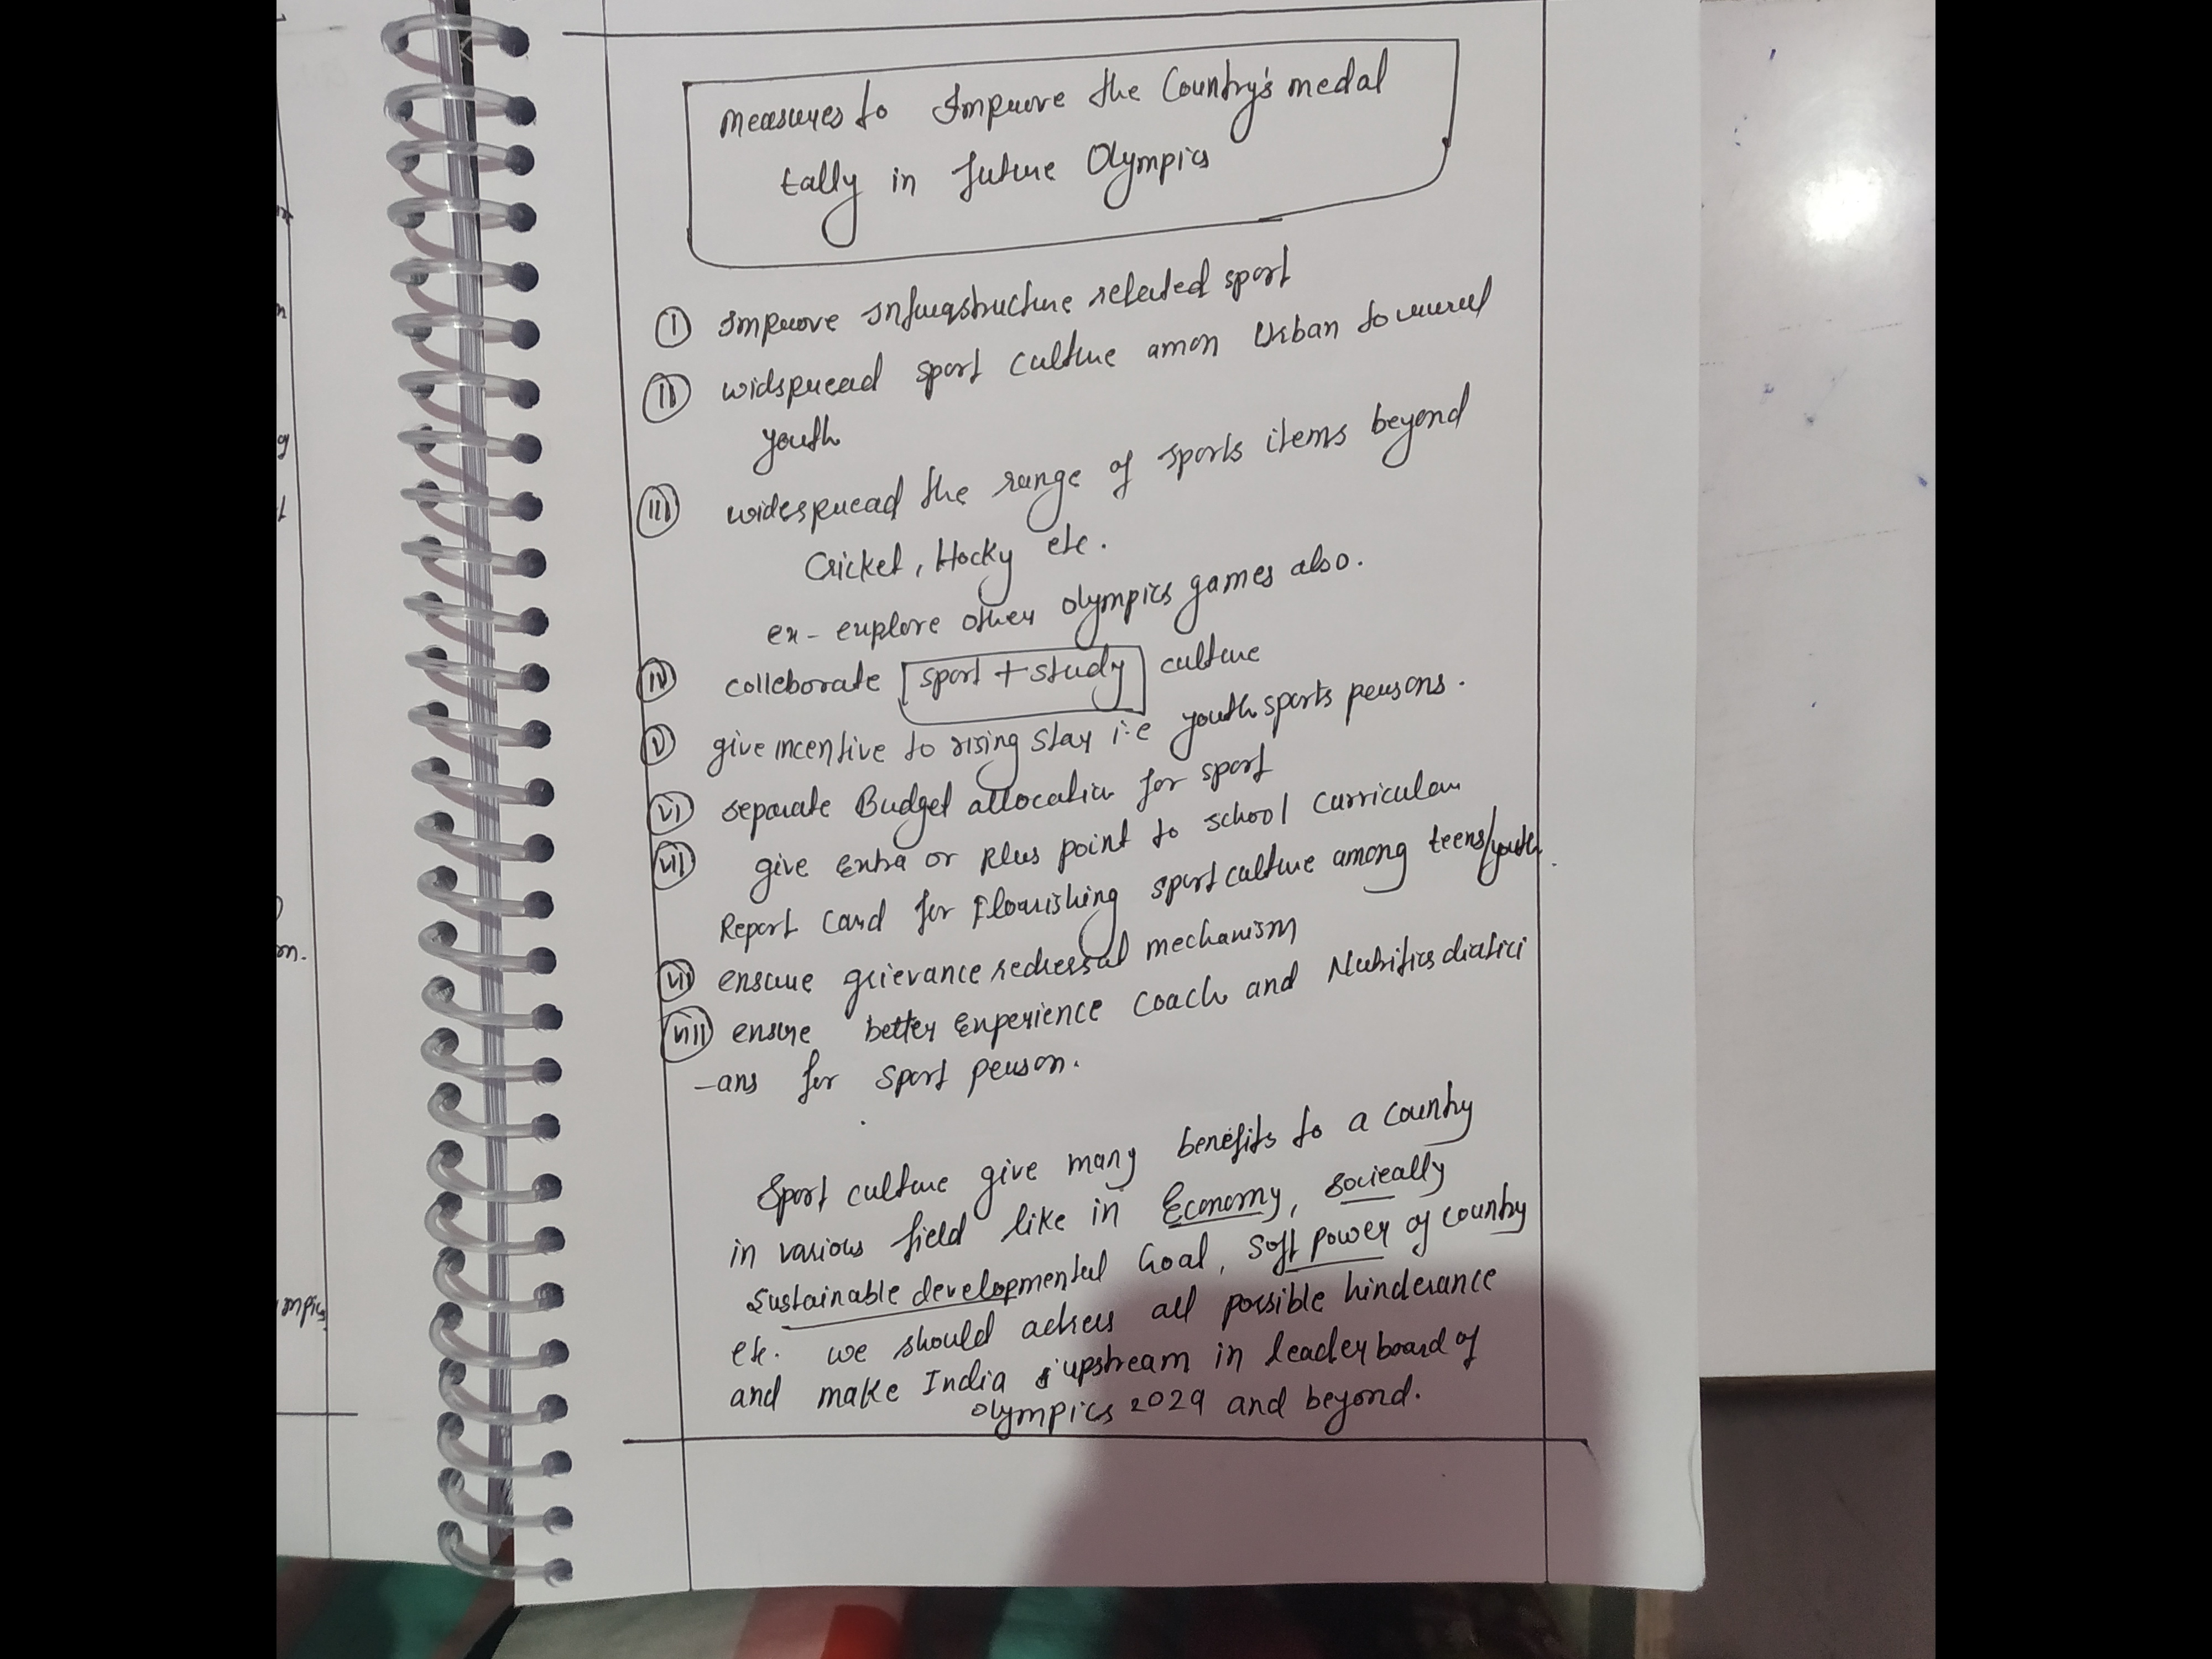 measures to Improve the Country's medal
tally in future Olympics
I improve infrastructure related sport
II widspread sport culture amon Urban to rural
youth
III widespread the range of sports items beyond
Cricket, Hocky etc.
ex- explore other olympics games also.
IV colleborate sport + study culture
V give incentive to rising star i.e youth sports persons.
VI separate Budget allocation for sport
VII give extra or plus point to school curriculam
Report Card for Flourishing sport culture among teens/youth.
VII ensure grievance redressal mechanism
VIII ensure better experience Coach and Nutrities diatici
-ans for sport person.
Sport culture give many benefits to a country
in various field like in Economy, socieally
sustainable developmental Goal, soft power of country
etc. we should adress all possible hinderance
and make India upstream in leader board of
olympics 2029 and beyond.
mpics
on.